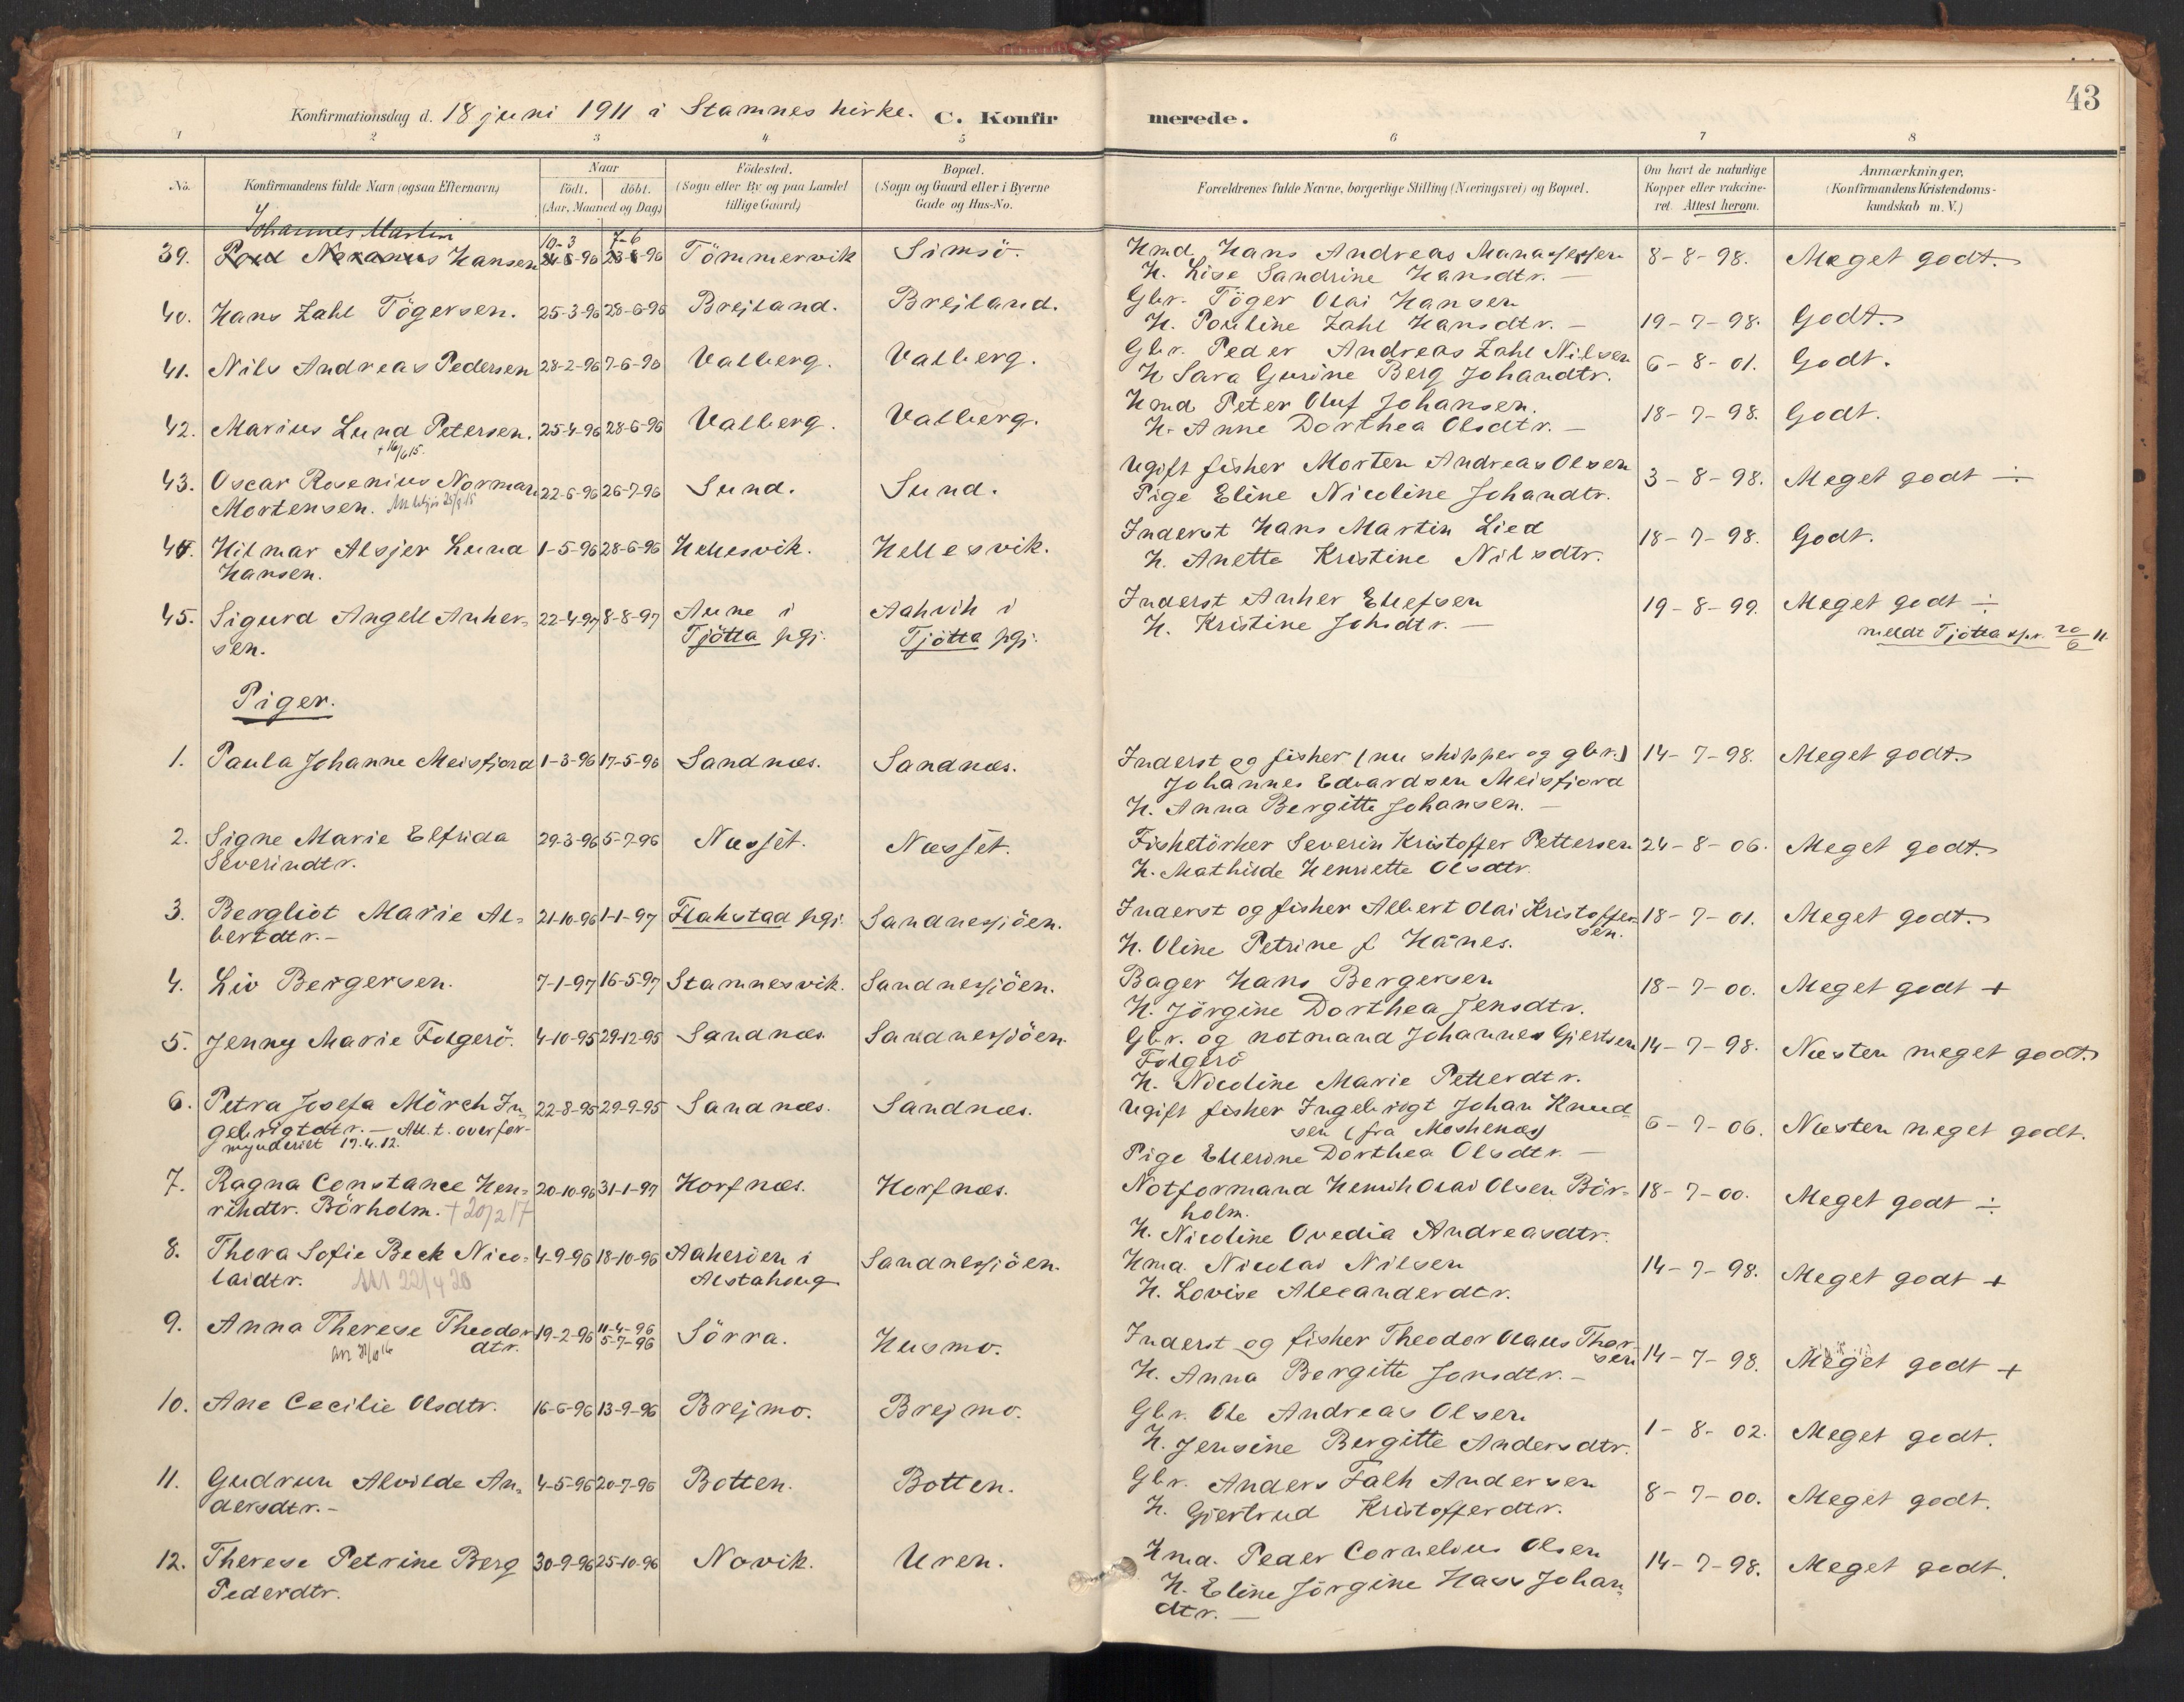 43
Konfirmationsdag d. 18 juni 1911 i Stamnes kirke. C. Konfirmerede.
1 2 3 4 5 6 7 8
No. Konfirmandens fulde Navn (ogsaa Efternavn) Naar født, døbt. (Aar, Maaned og Dag) Fødested. (Sogn eller By og paa Landet tillige Gaard) Bopæl. (Sogn og Gaard eller i Byerne Gade og Hus-No. Forældrenes fulde Navne, borgerlige Stilling (Næringsvei) og Bopæl. Om havt de naturlige Kopper eller vakcineret. Attest herom. Anmærkninger. (Konfirmandens Kristendomskundskab m. V.)
Johannes Martin 10-3 7-6
39. Hansen 96 96 Tömmervik Simsö. Hmd. Hans Andreas Manassesen 8-8-98. Meget godt.
H. Lise Sandrine Hansdtr. —
40. Hans Zahl Tögersen. 25-3-96 28-6-96 Brejland. Brejland. Gbr. Töger Olai Hansen
H. Pouline Zahl Hansdtr. — 19-7-98. Godt.
41. Nils Andreas Pedersen 28-2-96 7-6-96 Valberg. Valberg. Gbr. Peder Andreas Zahl Nilsen 6-8-01. Godt.
H Sara Gurine Berg Johandtr.
42. Marius Lund Petersen. 25-4-96 28-6-96 Valberg. Valberg. Hmd Peter Oluf Johansen. 18-7-98. Godt.
H. Anne Dorthea Olsdtr. —
43. Oscar Rosenius Norman 22-6-96 26-7-96 Sund. Sund. Ugift fisker Morten Andreas Olsen 3-8-98. Meget godt ÷
Mortensen. Pige Eline Nicoline Johandtr.
44. Hilmar Alsjer Lund 1-5-96 28-6-96 Hellesvik. Hellesvik. Inderst Hans Martin Lied 18-7-98. Godt.
Hansen. H. Anette Kristine Nilsdtr.
45. Sigurd Angell Anker- 22-4-97 8-8-97 Aune i Aakvik i Inderst Anker Ellefsen 19-8-99. Meget godt ÷
sen. Tjötta pgj. Tjötta pgj. H. Kristine Johsdtr. — meldt Tjötta spr. 20/6 11.
Piger.
1. Paula Johanne Meisfjord 1-3-96 17-5-96 Sandnæs. Sandnæs. Inderst og fisker (nu skipper og gbr.) 14-7-98. Meget godt.
Johannes Edvardsen Meisfjord
H. Anna Bergitte Johansen. —
2. Signe Marie Elfrida 29-3-96 5-7-96 Næsset. Næsset. Fisketörker Severin Kristoffer Pettersen 24-8-06. Meget godt.
Severindtr. H. Mathilde Henriette Olsdtr.
3. Bergliot Marie Al- 21-10-96 1-1-97 Flakstad pgj. Sandnessjöen. Inderst og fisker Albert Olai Kristoffer- 18-7-01. Meget godt.
bertdtr. — sen.
H. Oline Petrine f. Hånes.
4. Liv Bergersen. 7-1-97 16-5-97 Stamnesvik. Sandnessjöen. Bager Hans Bergersen 18-7-00. Meget godt +
H. Jörgine Dorthea Jensdtr.
5. Jenny Marie Folgerö. 4-10-95 29-12-95 Sandnæs. Sandnessjöen. Gbr. og notmand Johannes Gjertsen 14-7-98. Næsten meget godt.
Folgerö
H. Nicoline Marie Petterdtr.
6. Petra Josefa Mörch In- 22-8-95 29-9-95 Sandnæs. Sandnæs. Ugift fisker Ingebrigt Johan Knud- 6-7-06. Næsten meget godt.
gebrigtdtr. — Att. t. overfor- sen (fra Moskenæs)
mynderiet 17.4.12. Pige Ellerine Dorthea Olsdtr. —
7. Ragna Constance Hen- 20-10-96 31-1-97 Horfnæs. Horfnæs. Notformand Henrik Olai Olsen Bör- 18-7-00. Meget godt ÷
rikdtr. Börholm. † 20/2 17 holm.
H. Nicoline Ovedia Andreasdtr.
8. Thora Sofie Beck Nico- 4-9-96 18-10-96 Aakeröen i Sandnessjöen. Hmd. Nicolai Nilsen 14-7-98. Meget godt +
laidtr. 22/4 20 Alstahoug H. Lovise Alexanderdtr.
9. Anna Therese Theodor 19-2-96 11-4-96 5-7-96 Sörra. Husmo. Inderst og fisker Theodor Olaus Thor- 14-7-98. Meget godt +
dtr. sen
H. Anna Bergitte Jonsdtr. —
10. Ane Cecilie Olsdtr. 16-6-96 13-9-96 Brejmo. Brejmo. Gbr. Ole Andreas Olsen 1-8-02. Meget godt.
H. Jensine Bergitte Andersdtr.
11. Gudrun Alvilde An- 4-5-96 20-7-96 Botten. Botten. Gbr. Anders Falk Andersen 8-7-00. Meget godt.
dersdtr. — H. Gjertrud Kristofferdtr.
12. Therese Petrine Berg 30-9-96 25-10-96 Novik. Uren. Hmd. Peder Cornelius Olsen 14-7-98. Meget godt.
Pederdtr. H. Eline Jörgine Hass Johan-
dtr. —